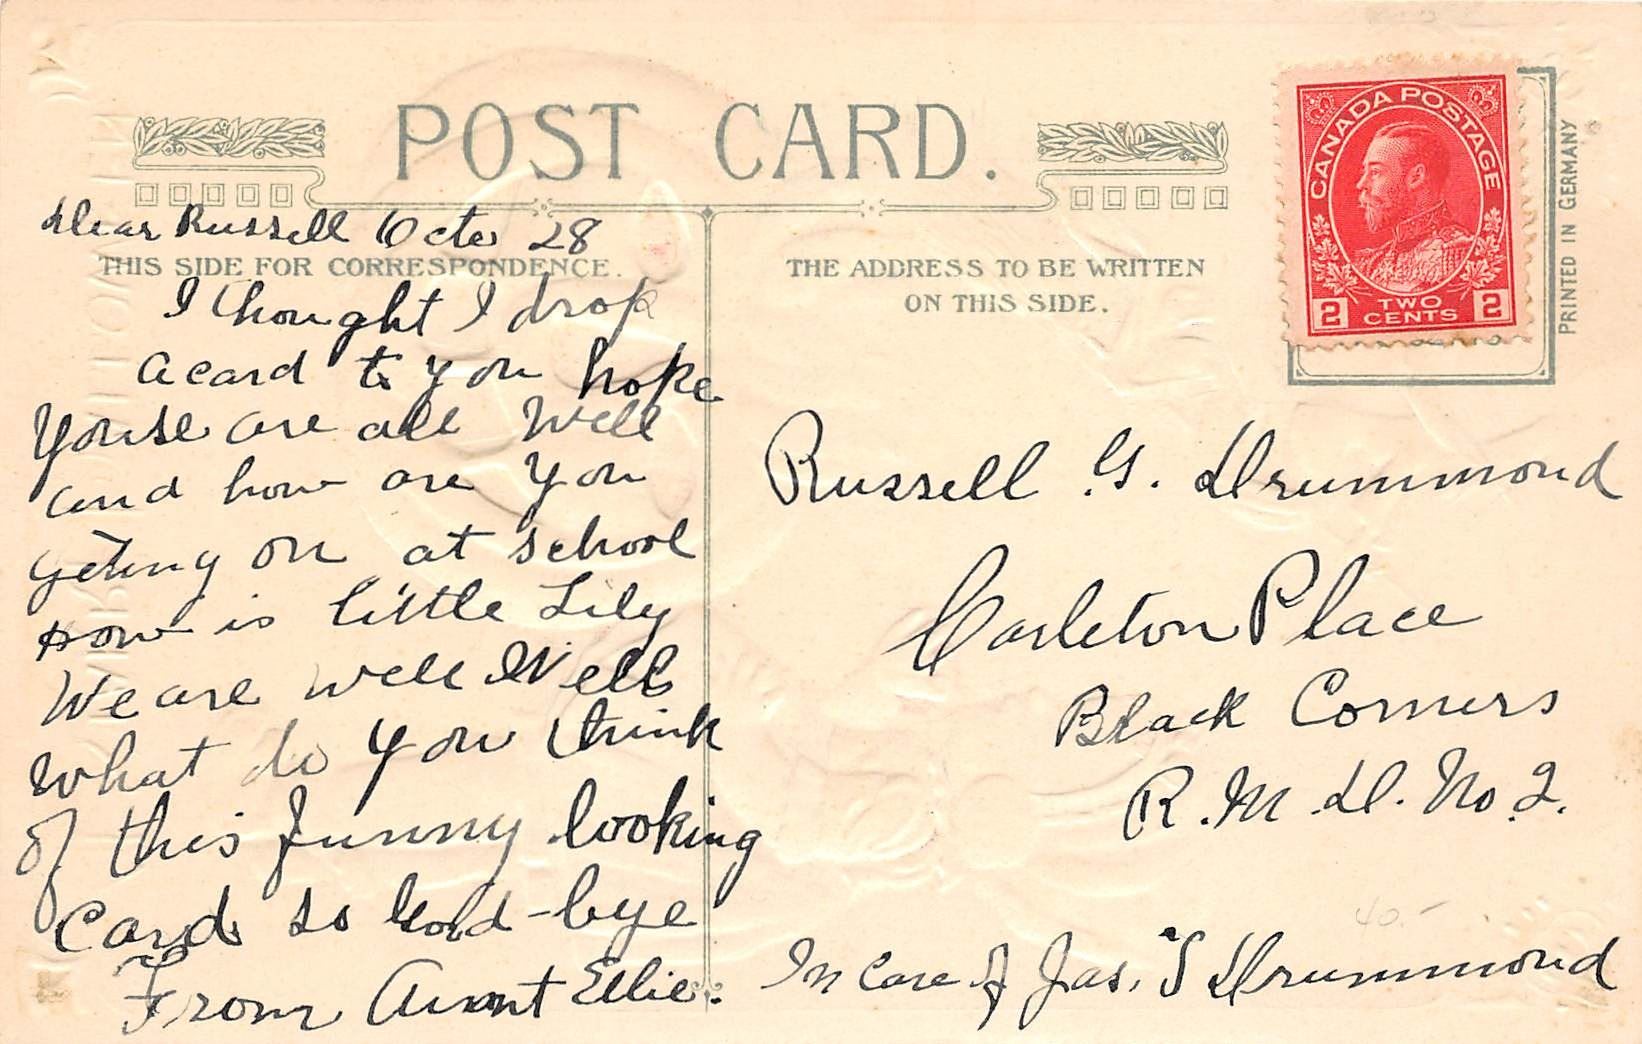 POST CARD.
CANADA POSTAGE
2 TWO CENTS 2
PRINTED IN GERMANY
THIS SIDE FOR CORRESPONDENCE.
THE ADDRESS TO BE WRITTEN
ON THIS SIDE.
Dear Russell Octo 28
I thought I drop
a card to you hope
youse are all well
and how are you
geting on at school
How is little Lily
We are well Well
what do you think
of this funny looking
card so Good-bye
From Aunt Ellie.
Russell G. Drummond
Carleton Place
Black Corners
R.M.D. No 2.
40.-
In Care of Jas. S Drummond